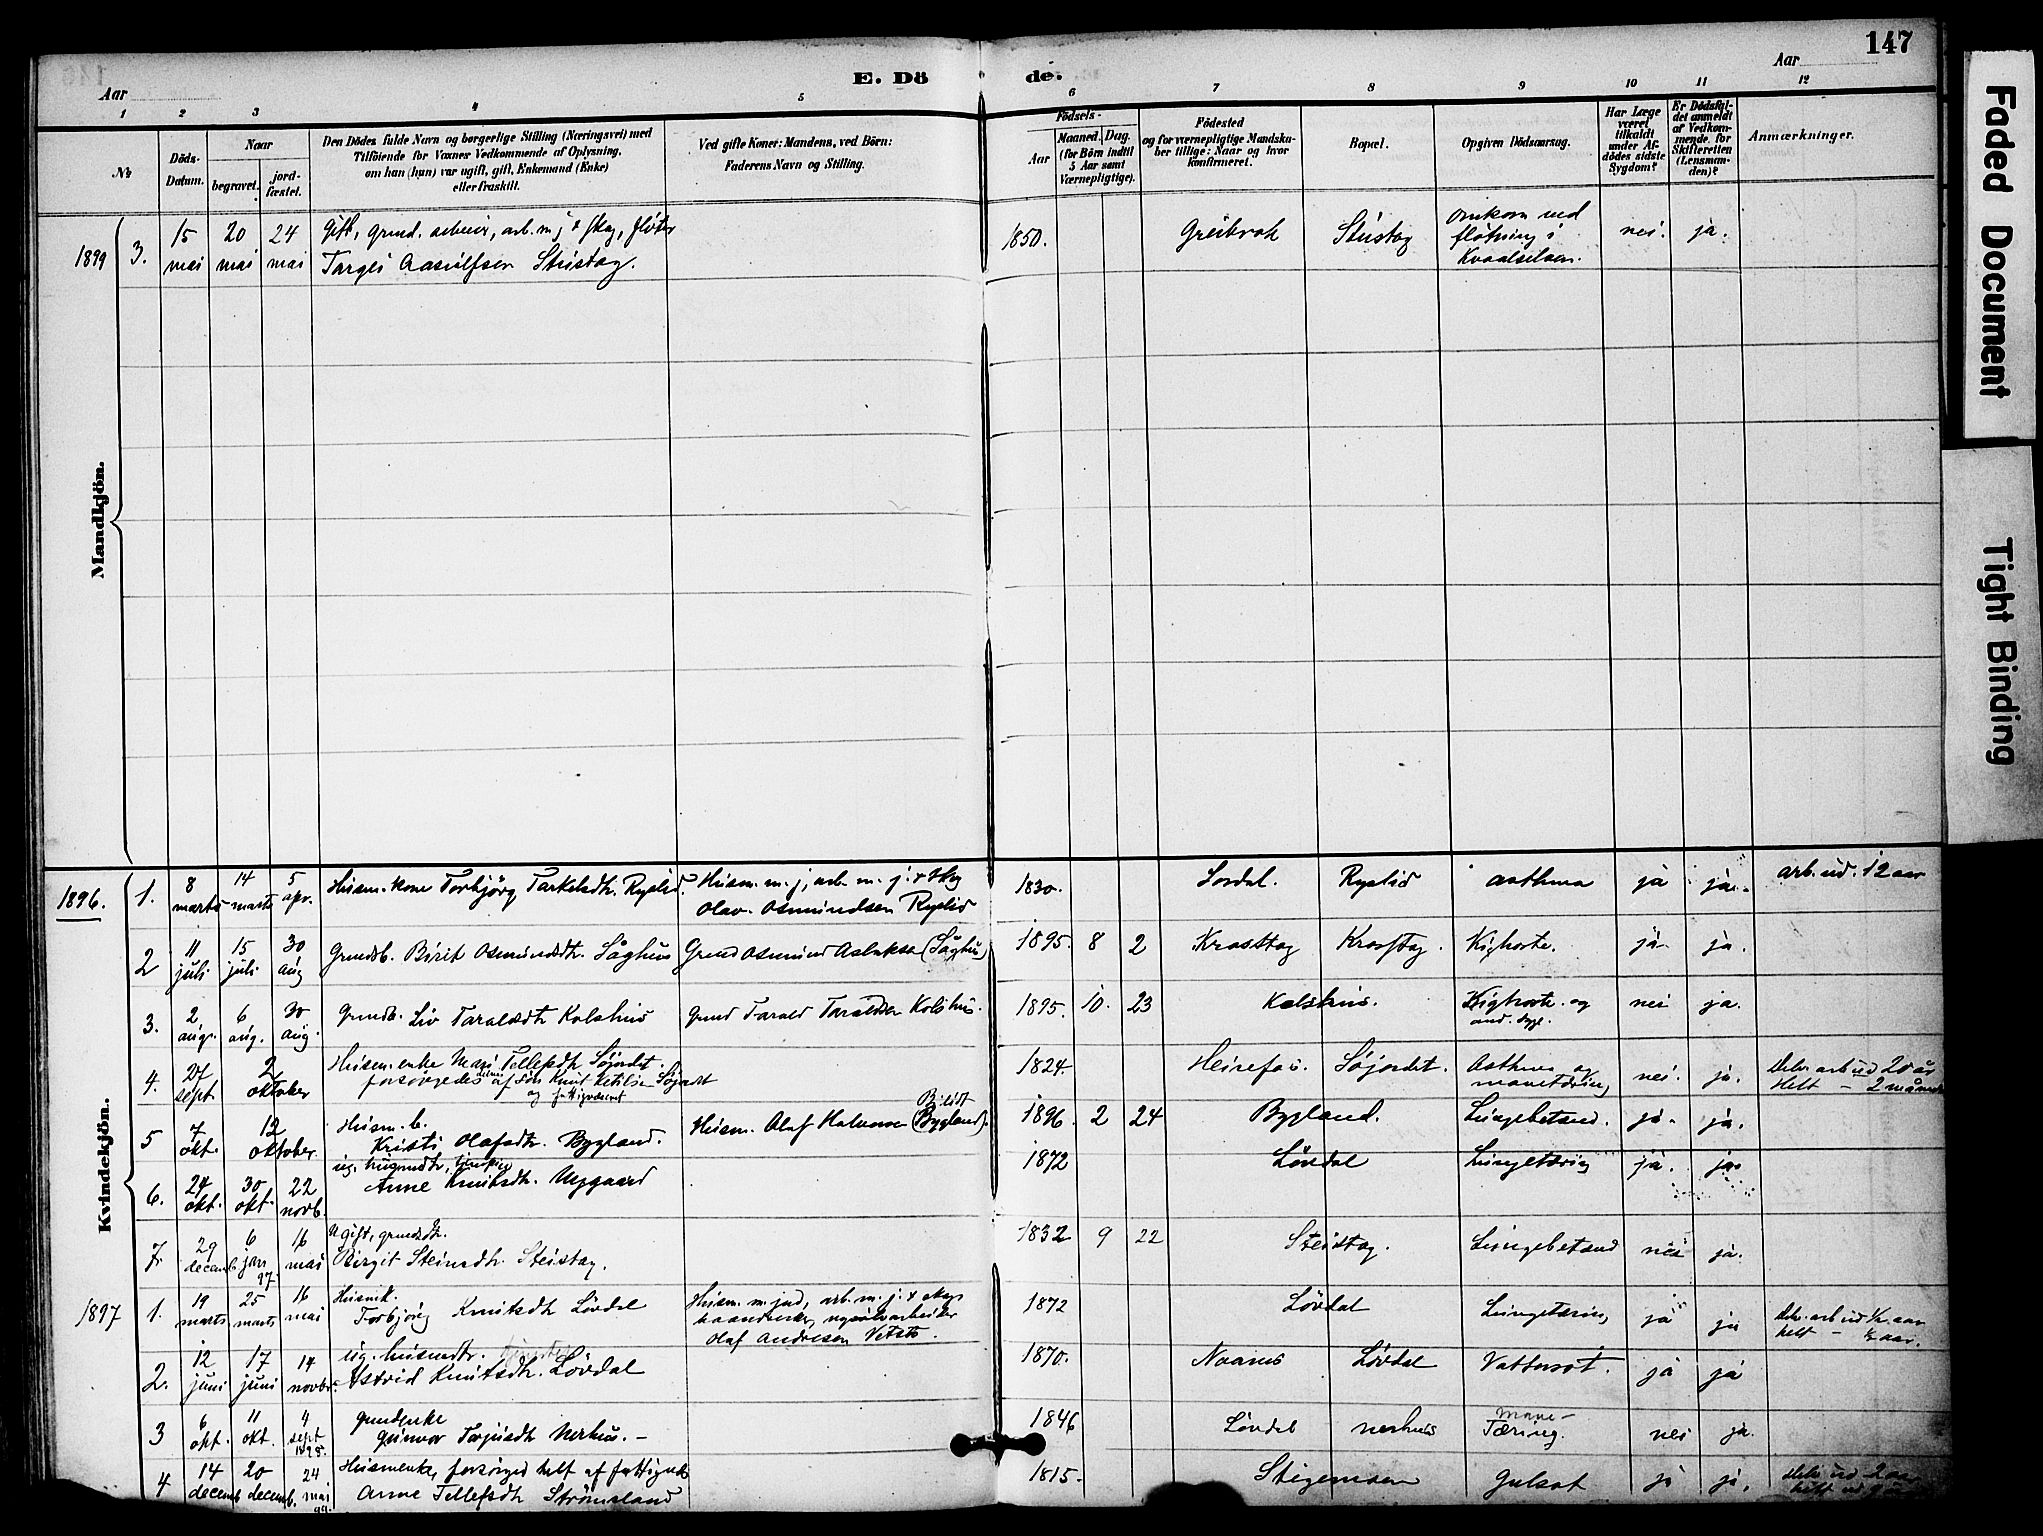 147
Aar
E. Dö de.
Aar
1 2 3 4 5 6 7 8 9 10 11 12
No
Döds-Datum.
Naar
begravet.
jord-fæstet.
Den Dödes fulde Navn og borgerlige Stilling (Næringsvei) med
Tilföiende for Voxnes Vedkommende af Oplysning,
om han (hun) var ugift, gift, Enkemand (Enke)
eller fraskilt.
Ved gifte Koner: Mandens, ved Börn:
Faderens Navn og Stilling.
Födsels-
Aar
Maaned. Dag.
(for Børn indtil
5 Aar samt
Værnepligtige).
Födested
og for værnepligtige Mandska-
ber tillige: Naar og hvor
konfirmeret.
Bopæl.
Opgiven Dödsaarsag.
Har Læge
været
tilkaldt
under Af-
dødes sidste
Sygdom?
Er Dödsfal-
det anmeldt
af Vedkom-
mende for
Skifteretten
(Lensman-
den)?
Anmærkninger.
Mandkjön.
1899 3. 15 mai 20 mai 24 mai
Gift, grund. arbeider, arb. m. j. & skog, fløter
Targei Aasulfsen Steistog.
1850. Greibrok Steistog
omkom ved
fløtning i
Kvaalselven.
nei. ja.
Kvindekjön.
1896. 1. 8 marts 14 marts 5 apr.
Husm. kone Torbjörg Tarkelsdtr. Ryslid.
Husm. m. j., arb. m. j. & skog
Olav Osmundsen Ryslid
1830. Lordal. Ryslid asthma ja ja. arb. ud. 12 aar
2 11 juli 15 juli 30 aug
Grundb. Birit Osmundsdtr. Såghus
Grund Osmund Aslaksen (Såghus)
1895. 8 2 Krosstog Krosstog. Kighoste. ja ja.
3. 2 aug. 6 aug. 30 aug.
Grundb. Liv Taraldsdtr Kolshus
Grund Tarald Taraldsen Kolshus.
1895. 10. 23 Kolshus. Kighoste og
and. syge.
nei ja.
4. 27 sept 2 oktober
Husm. enke Mari Tellefsdtr Søjordet.
forsørgedes delvis af Søn Knut Ketilsen Søjordet
og fattigvæsenet
1824. Heirefos Søjordet. Asthma og
mavetæring
nei. ja. Delv. arb ud 20 år
Helt – 2 måneder
5 7 okt. 12 oktober.
Husm. b.
Kristi Olafsdtr. Bygland.
Husm. Olaf Halvorsen (Bygland).
1896. 2 24 Bygland. Lungebetænd. ja. ja.
6. 24 okt. 30 okt. 22 novb.
Anne Knutsdtr. Nygaard
1872 Løvdal Lungetæring ja. ja.
7. 29 decemb. 6 jan 97. 16 mai
Ugift, grundsdtr.
Birgit Steinsdtr. Steistog.
1832 9 22 Steistog. Lungebetænd nei ja.
1897 1. 19 marts 25 marts 16 mai
Husmk.
Torbjörg Knutsdtr Løvdal
Husm. m. jod, arb. m. j. & skog
haandverker,
Olaf Andresen
1872 Løvdal Lungetæring ja ja Delv. arb ud ½ aar
helt – ½ aar.
2. 12 juni 17 juni 14 novbr.
ug. husmdtr.
Astrid Knutsdtr. Løvdal
1870. Naanes Løvdal Vattersot. ja ja
3 6 okt. 11 okt. 4 sept 1898.
Grundenke
Gunvor Torjusdtr Nerhus. –
1846 Løvdal nerhus Mave-
Tæring.
nei ja.
4 14 decemb 20 decemb. 24 mai 98.
Husmenke, forsørged helt af fattigvæs
Anne Tellefsdtr Strömsland
1815. Stigemoen Gulsot ja ja. Delv ud 2 aar
Faded Document
Tight Binding